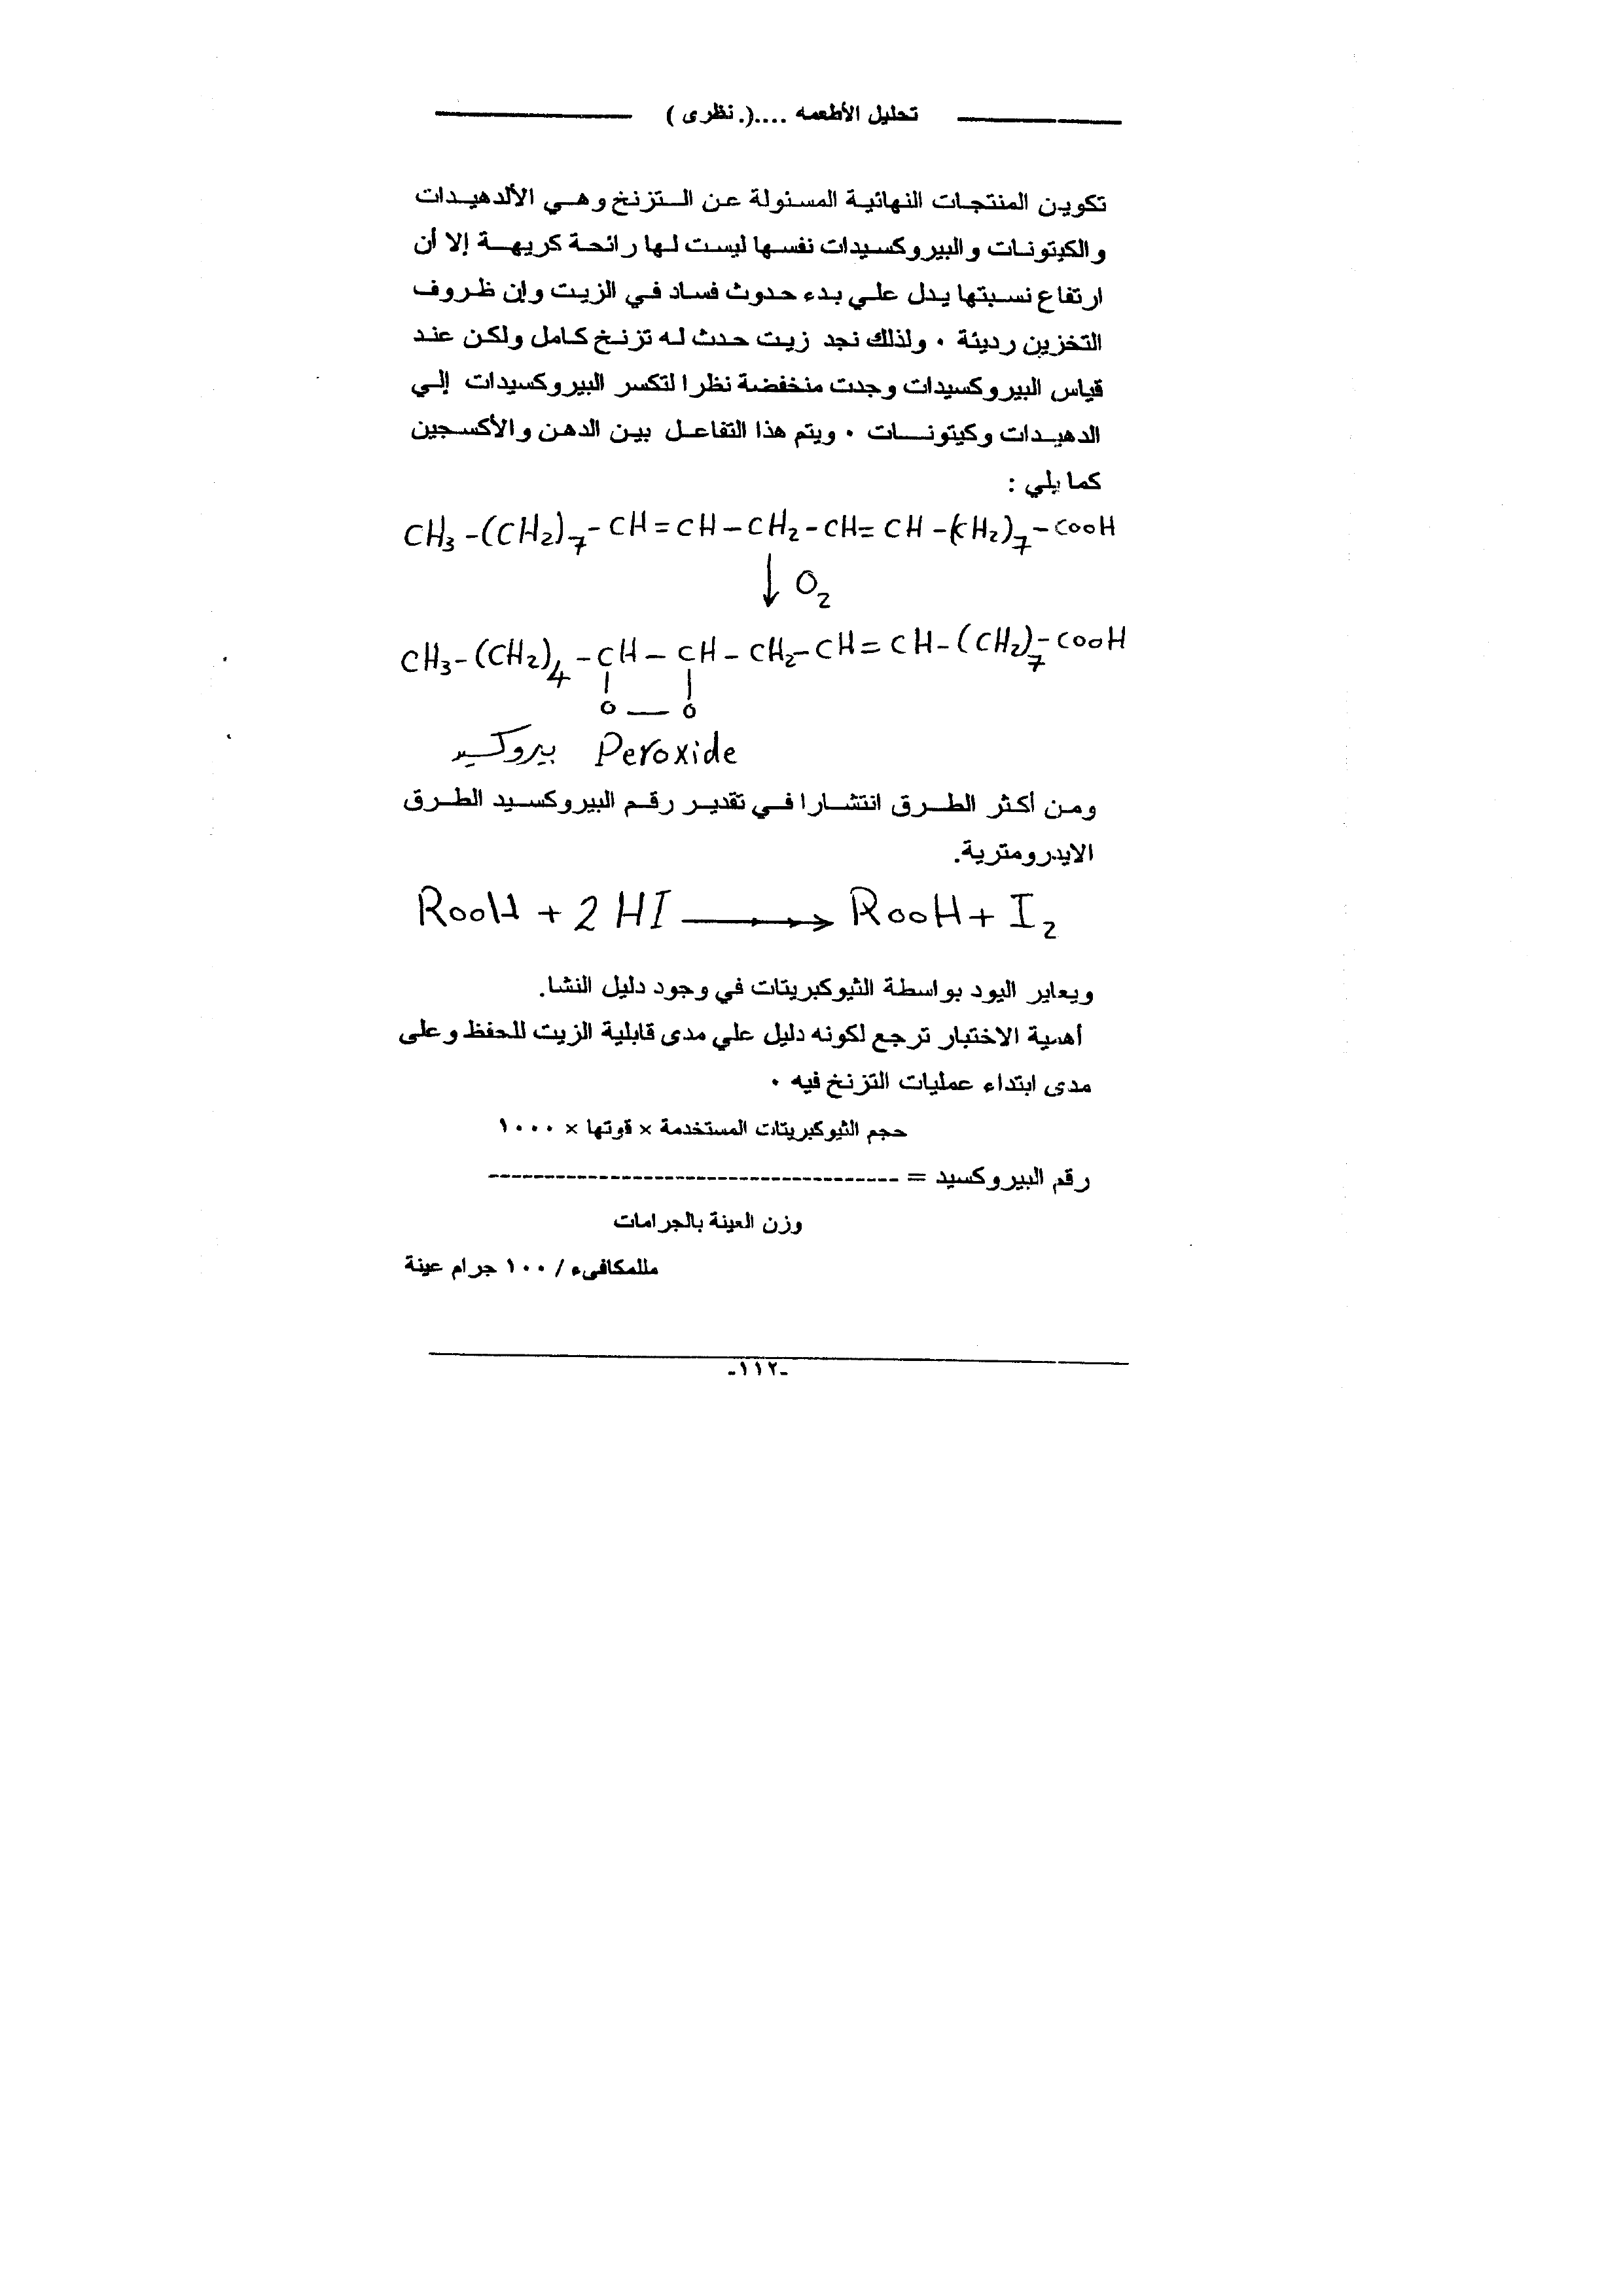 تحليل الأطعمه ....(. نظرى )
تكوين المنتجات النهائية المسئولة عن التزنخ وهي الألدهيدات
والكيتونات والبيروكسيدات نفسها ليست لها رائحة كريهة إلا أن
ارتفاع نسبتها يدل علي بدء حدوث فساد في الزيت وإن ظروف
التخزين رديئة ٠ ولذلك نجد زيت حدث له تزنخ كامل ولكن عند
قياس البيروكسيدات وجدت منخفضة نظرا لتكسر البيروكسيدات إلي
الدهيدات وكيتونات ٠ ويتم هذا التفاعل بين الدهن والأكسجين
كما يلي :
CH3-(CH2)7-CH=CH-CH2-CH=CH-(CH2)7-COOH
↓ O2
CH3-(CH2)4-CH-CH-CH2-CH=CH-(CH2)7-COOH
O — O
Peroxide بيروكسيد
ومن أكثر الطرق انتشارا في تقدير رقم البيروكسيد الطرق
الايدرومترية.
ROOH + 2 HI → ROOH + I2
ويعاير اليود بواسطة الثيوكبريتات في وجود دليل النشا.
أهمية الاختبار ترجع لكونه دليل علي مدى قابلية الزيت للحفظ وعلى
مدى ابتداء عمليات التزنخ فيه ٠
حجم الثيوكبريتات المستخدمة × قوتها × ١٠٠٠
رقم البيروكسيد = ------------------------------------
وزن العينة بالجرامات
مللمكافىء / ١٠٠ جرام عينة
-١١٢-